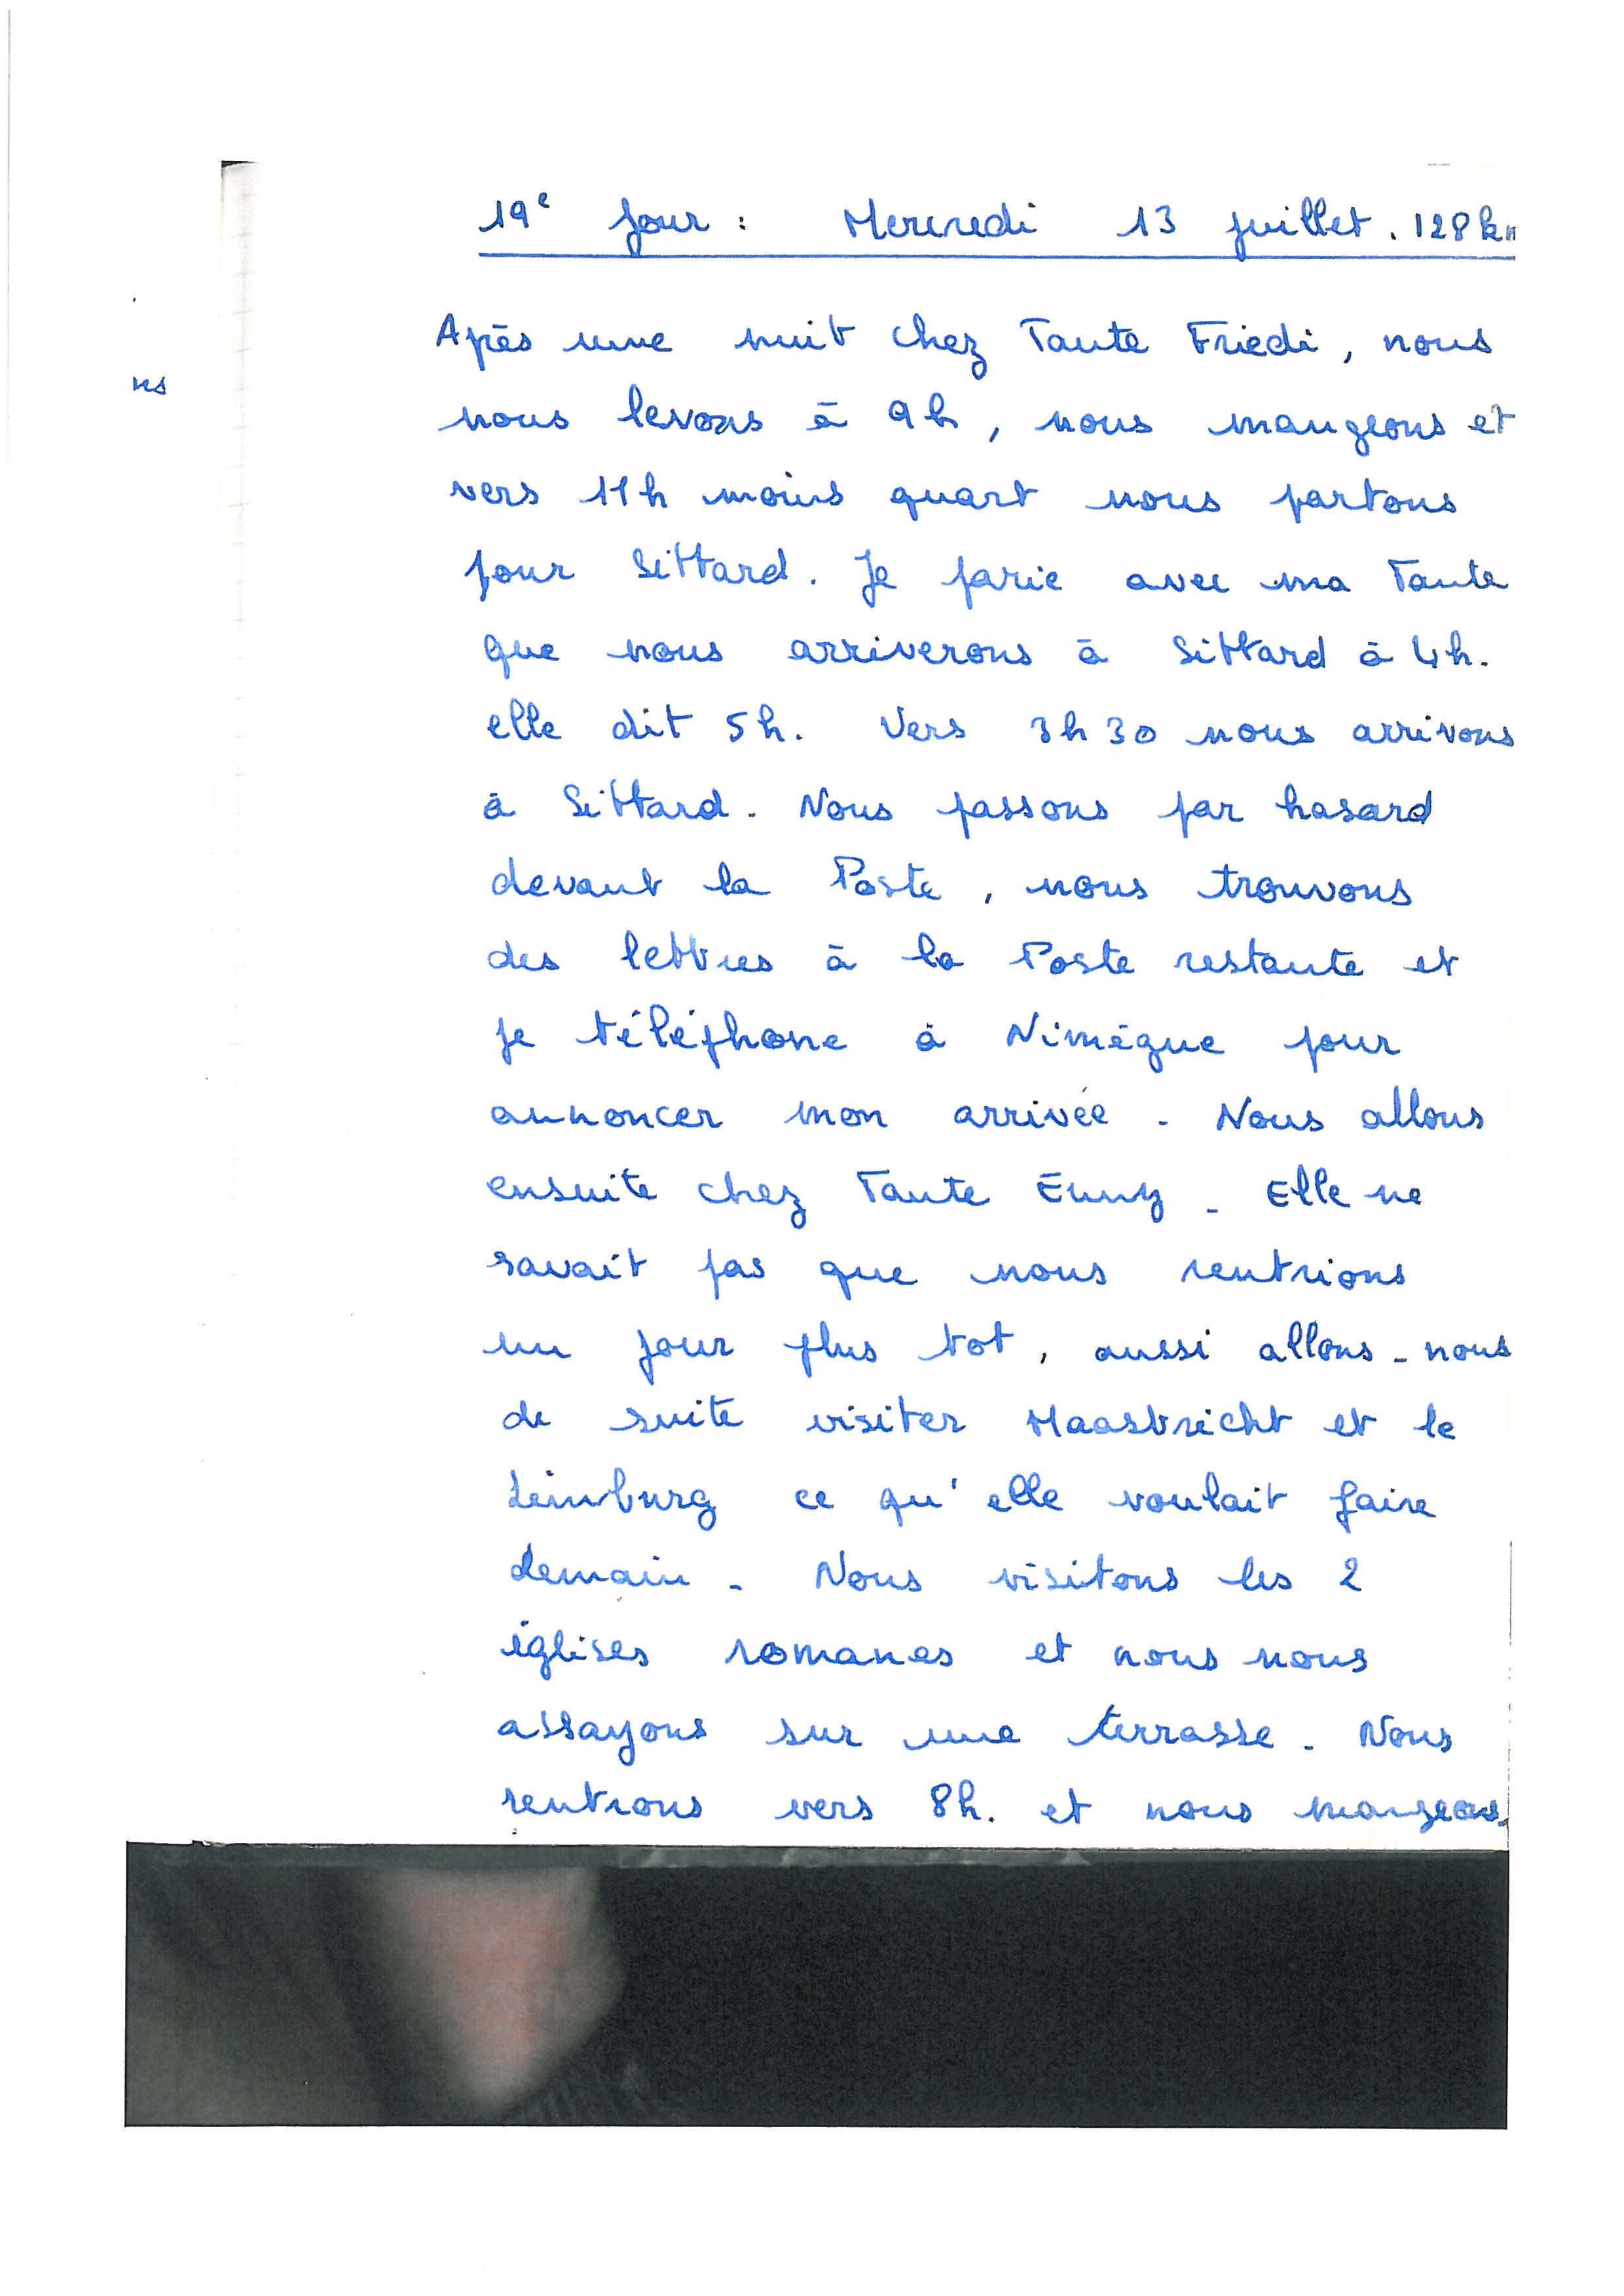 19e jour : Mercredi 13 juillet. 128 km
Après une nuit chez Tante Friedi, nous
ns
nous levons à 9h, nous mangeons et
vers 11h moins quart nous partons
pour Sittard. Je parie avec ma Tante
que nous arriverons à Sittard à 4h.
elle dit 5h. Vers 3h30 nous arrivons
à Sittard. Nous passons par hasard
devant la Poste, nous trouvons
des lettres à la Poste restante et
je téléphone à Nimègue pour
annoncer mon arrivée. Nous allons
ensuite chez Tante Enny. Elle ne
savait pas que nous rentrions
un jour plus tot, aussi allons-nous
de suite visiter Maastricht et le
Limburg ce qu'elle voulait faire
demain. Nous visitons les 2
églises romanes et nous nous
assayons sur une terrasse. Nous
rentrons vers 8h. et nous mangeons.